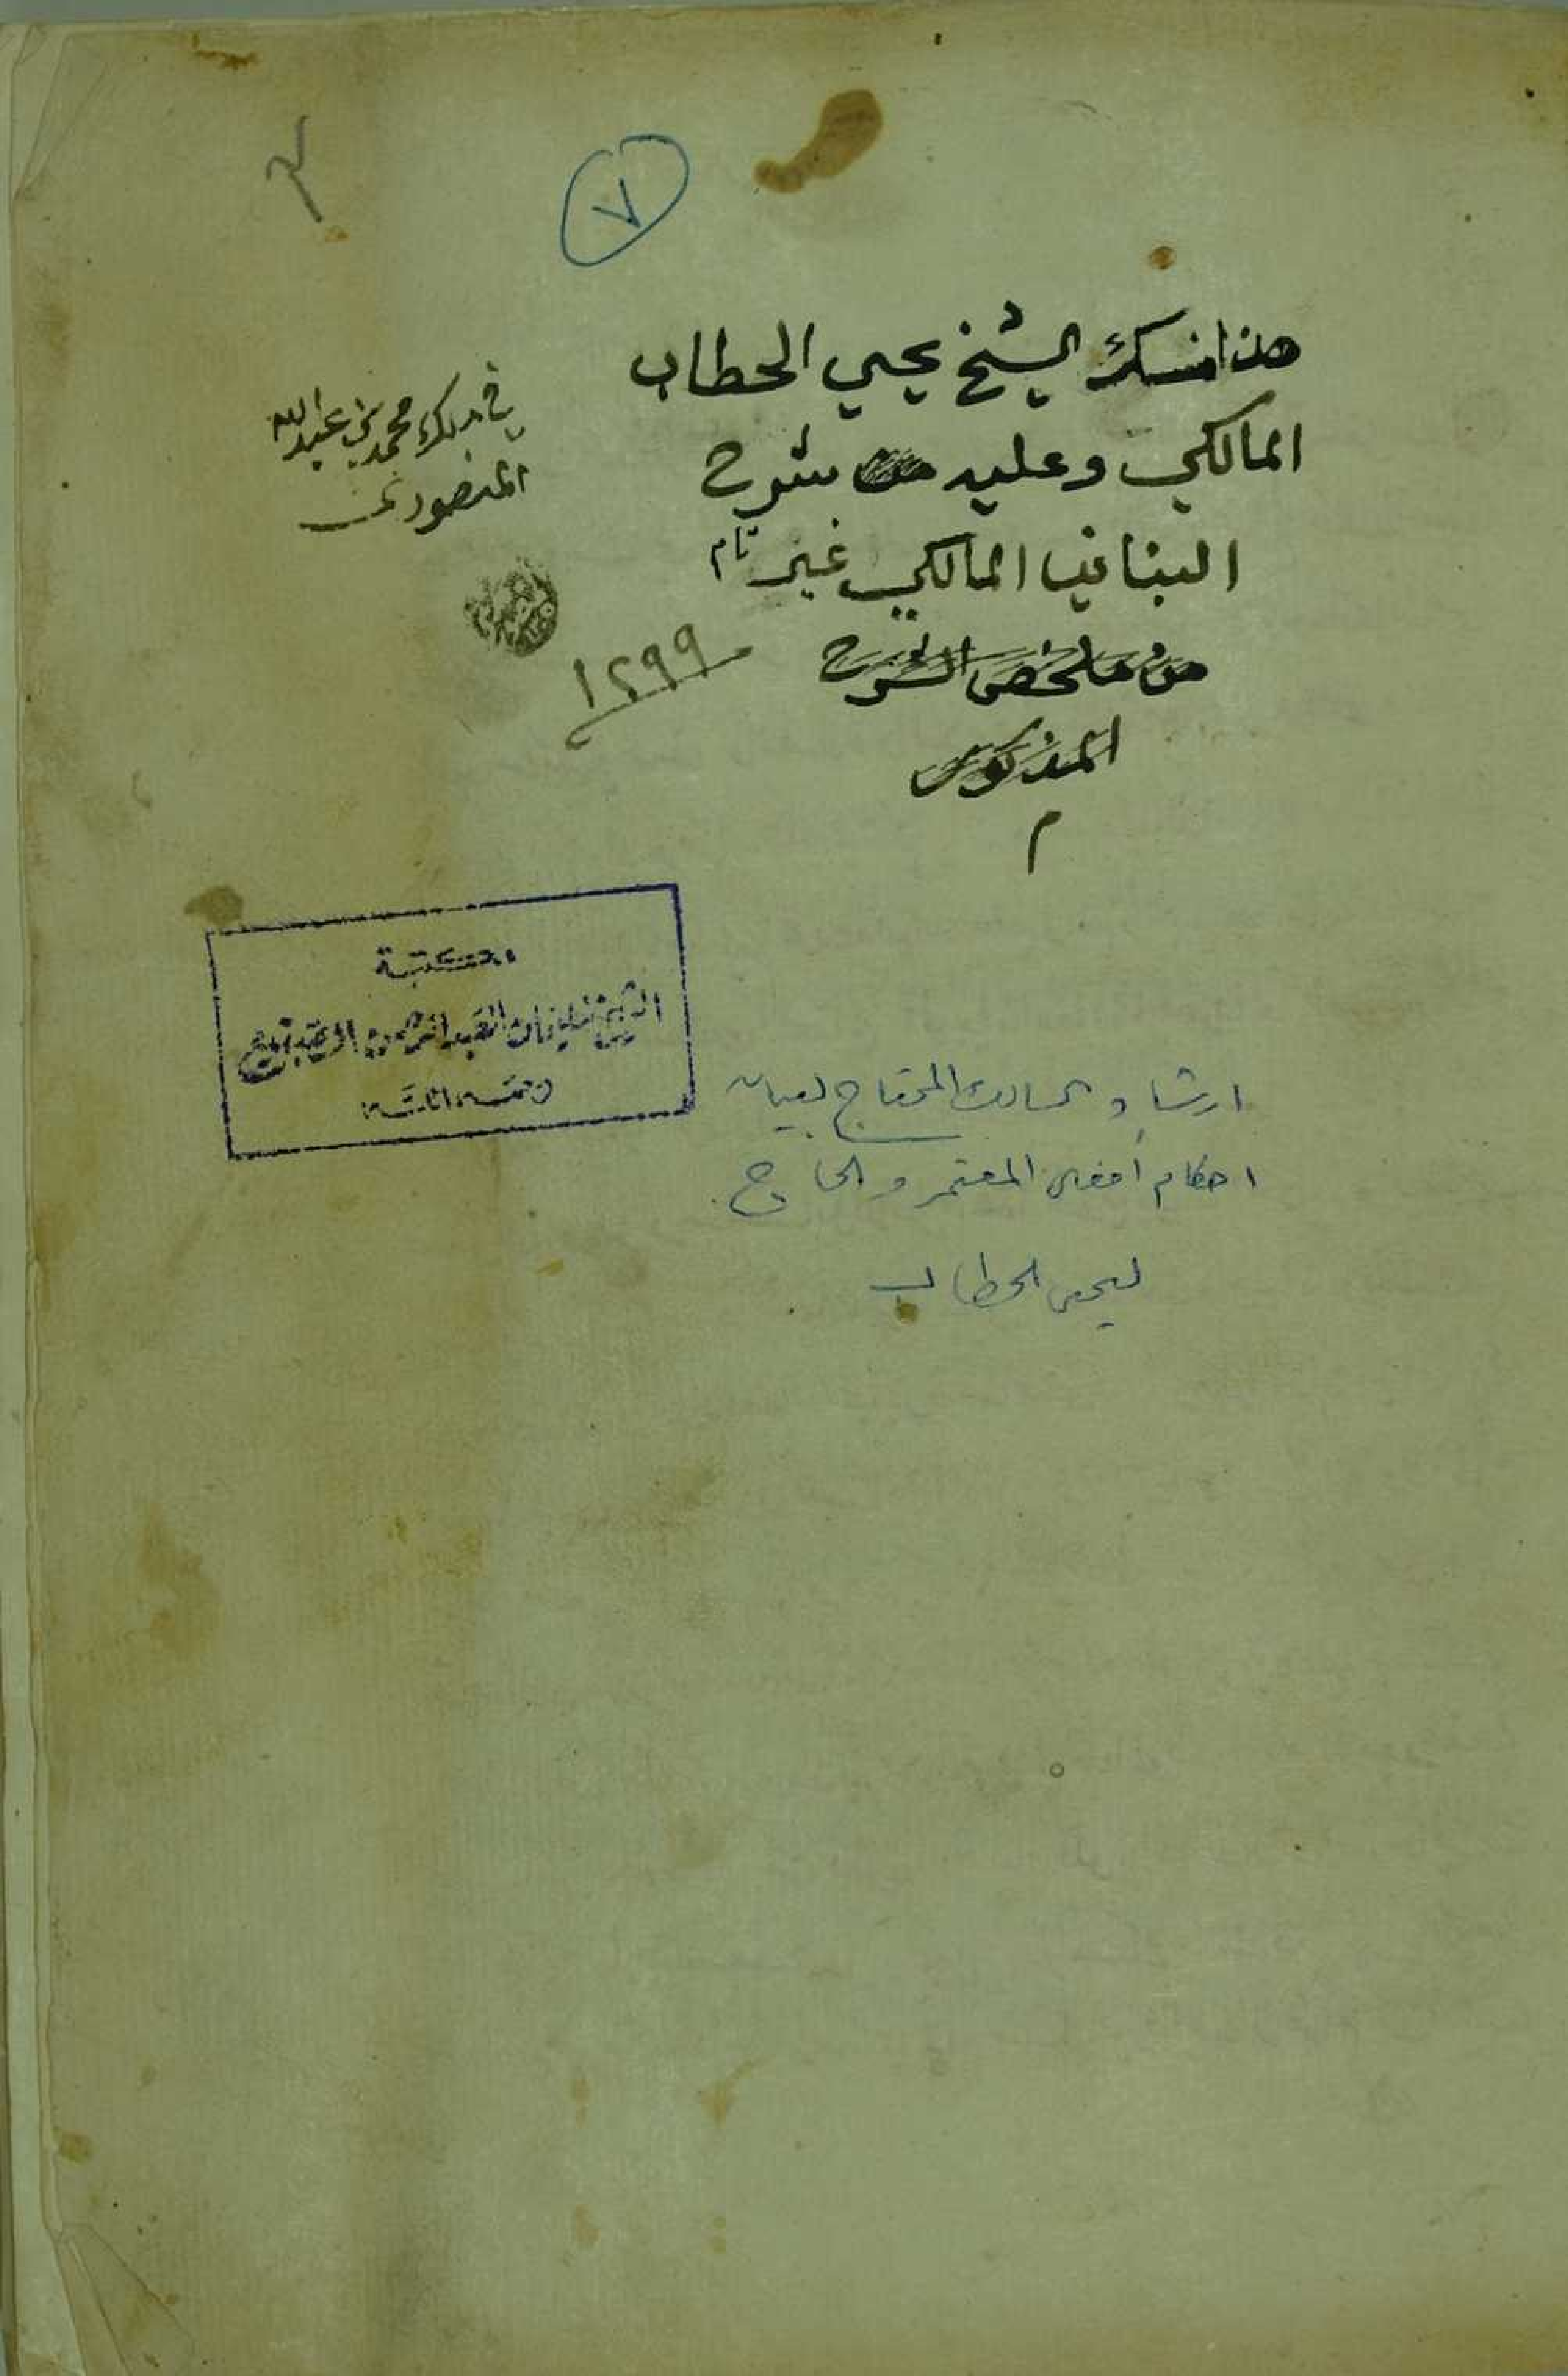 ٣
٧
هذا منسك الشيخ يحيي الحطاب
المالكي وعليه شرح
البناني المالكي غير تام
من ملخص الشرح
المذكور
م
في ملك محمد بن عبد الله
المنصوري
١٢٩٩
مكتبة
الشيخ سليمان العبد الرحمن
رحمه الله
ارشاد السالك المحتاج لبيان
احكام أفعال المعتمر والحاج
ليحيى الحطاب